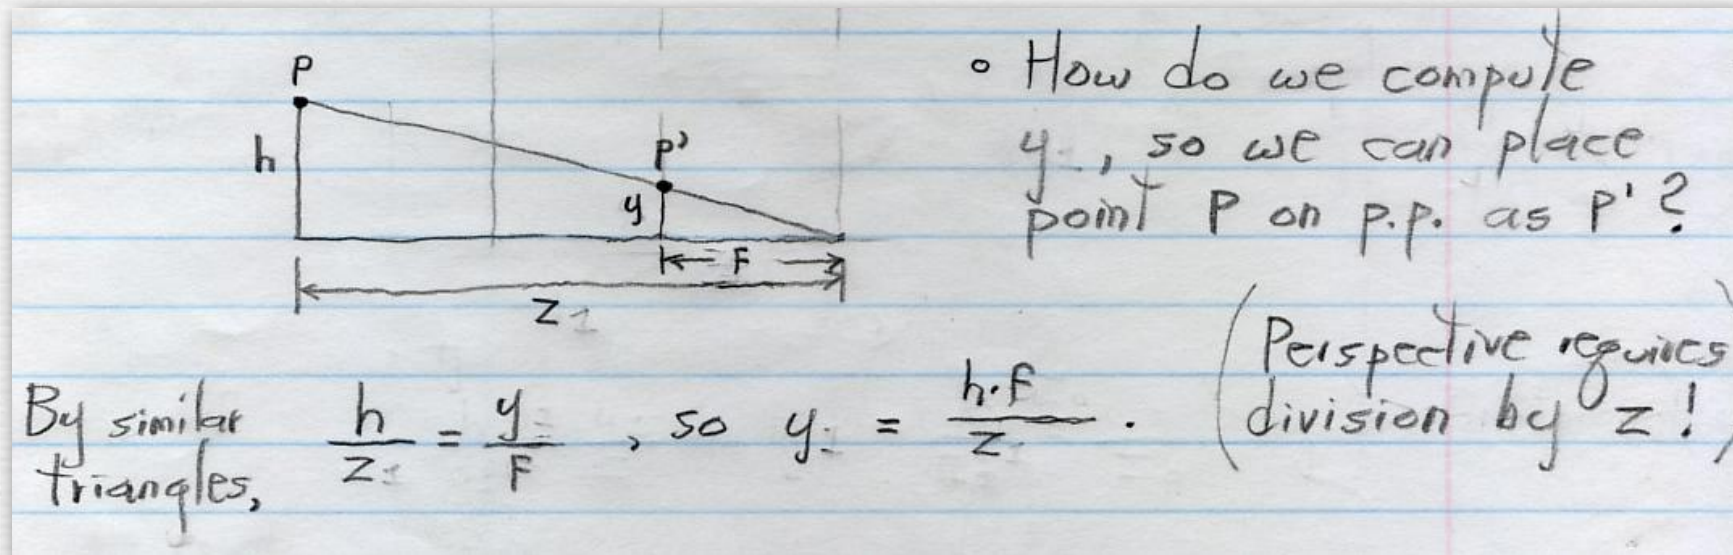 P
h
P'
y
F
Z
• How do we compute
y, so we can place
point P on p.p. as P'?
(Perspective requires
division by z!)
By similar
triangles,
h/z = y/F, so y = h·F/z.